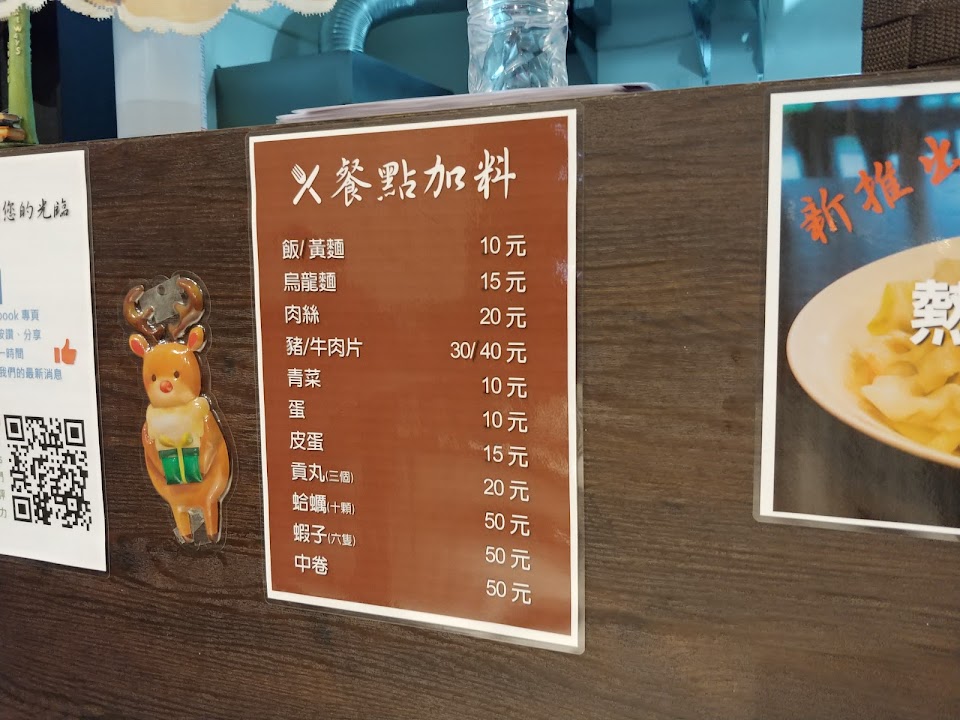 您的光臨
book 專頁
按讚、分享
一時間
我們的最新消息
餐點加料
飯/黃麵 10元
烏龍麵 15元
肉絲 20元
豬/牛肉片 30/40元
青菜 10元
蛋 10元
皮蛋 15元
貢丸(三個) 20元
蛤蠣(十顆) 50元
蝦子(六隻) 50元
中卷 50元
新推出
熱